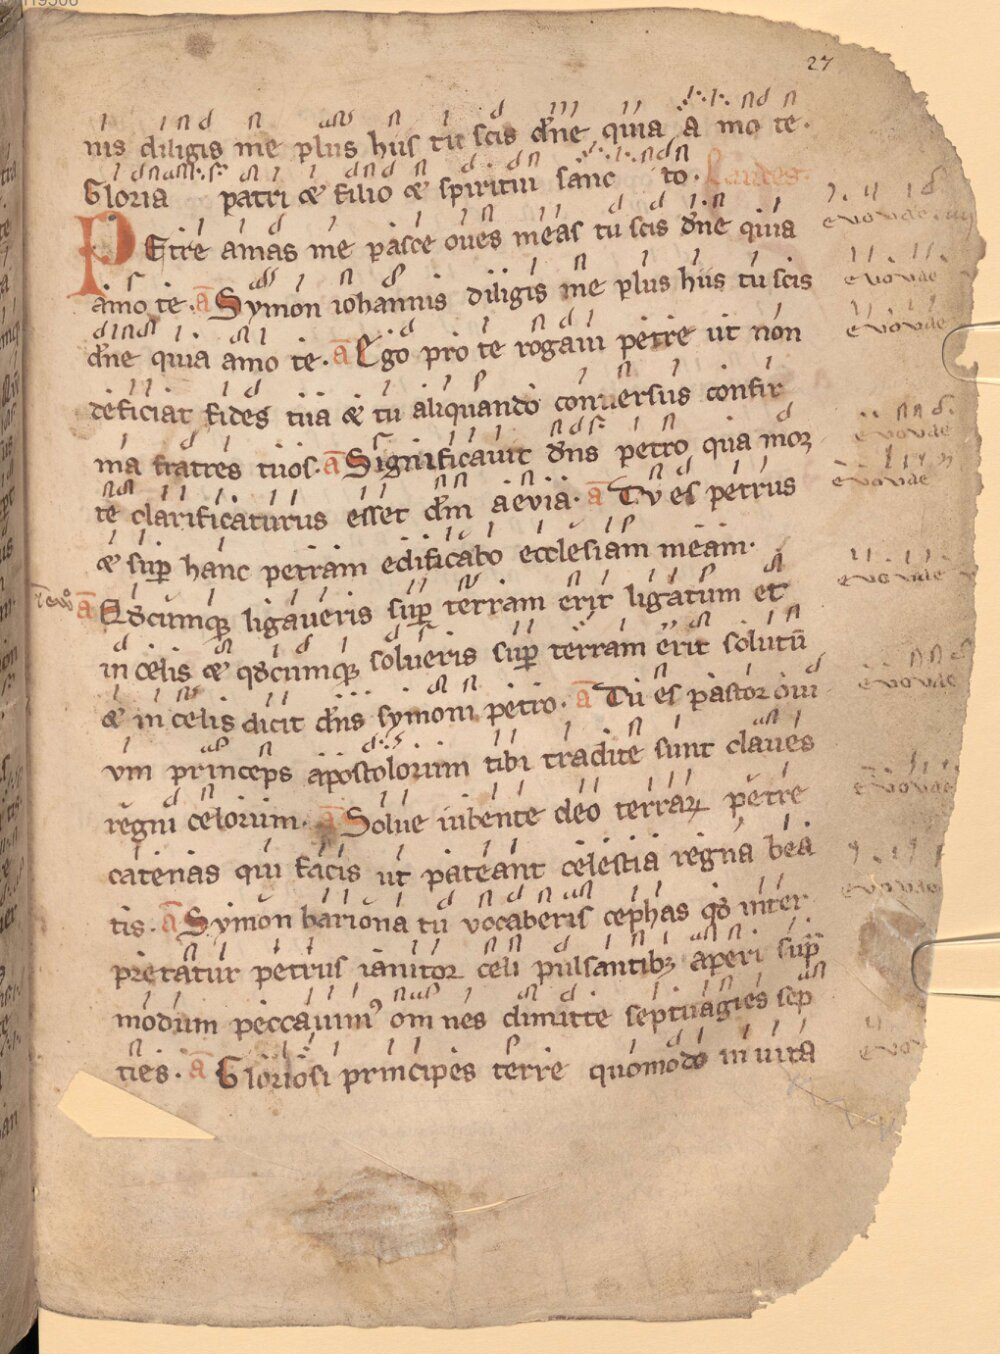 27
nis diligis me plus hiis tu scis dn̄e quia a mo te.
Gloria patri & filio & spiritui sanc to. Laudes.
PEtre amas me pasce oues meas tu scis dn̄e quia euouae
amo te. ā Symon iohannis diligis me plus hiis tu scis euouae
dn̄e quia amo te. ā Ego pro te rogaui petre ut non euouae
deficiat fides tua & tu aliquando conuersus confir
ma fratres tuos. ā Significauit dn̄s petro qua morꝫ euouae
te clarificaturus esset dm̄ aeuia. ā Tu es petrus euouae
& suꝑ hanc petram edificabo ecclesiam meam.
ā Qd̄cumqꝫ ligaueris suꝑ terram erit ligatum et euouae
in celis & qd̄cumqꝫ solueris suꝑ terram erit solutū
& in celis dicit dn̄s symoni petro. ā Tu es pastor oui euouae
um princeps apostolorum tibi tradite sunt claues
regni celorum. ā Solue iubente deo terrarꝝ petre euouae
catenas qui facis ut pateant celestia regna bea
tis. ā Symon bariona tu vocaberis cephas qd̄ inter euouae
pretatur petrus ianitor celi pulsantibꝫ aperi suꝑ
modum peccauimꝰ om nes dimitte septuagies sep
ties. ā Gloriosi principes terre quomodo in uita euo